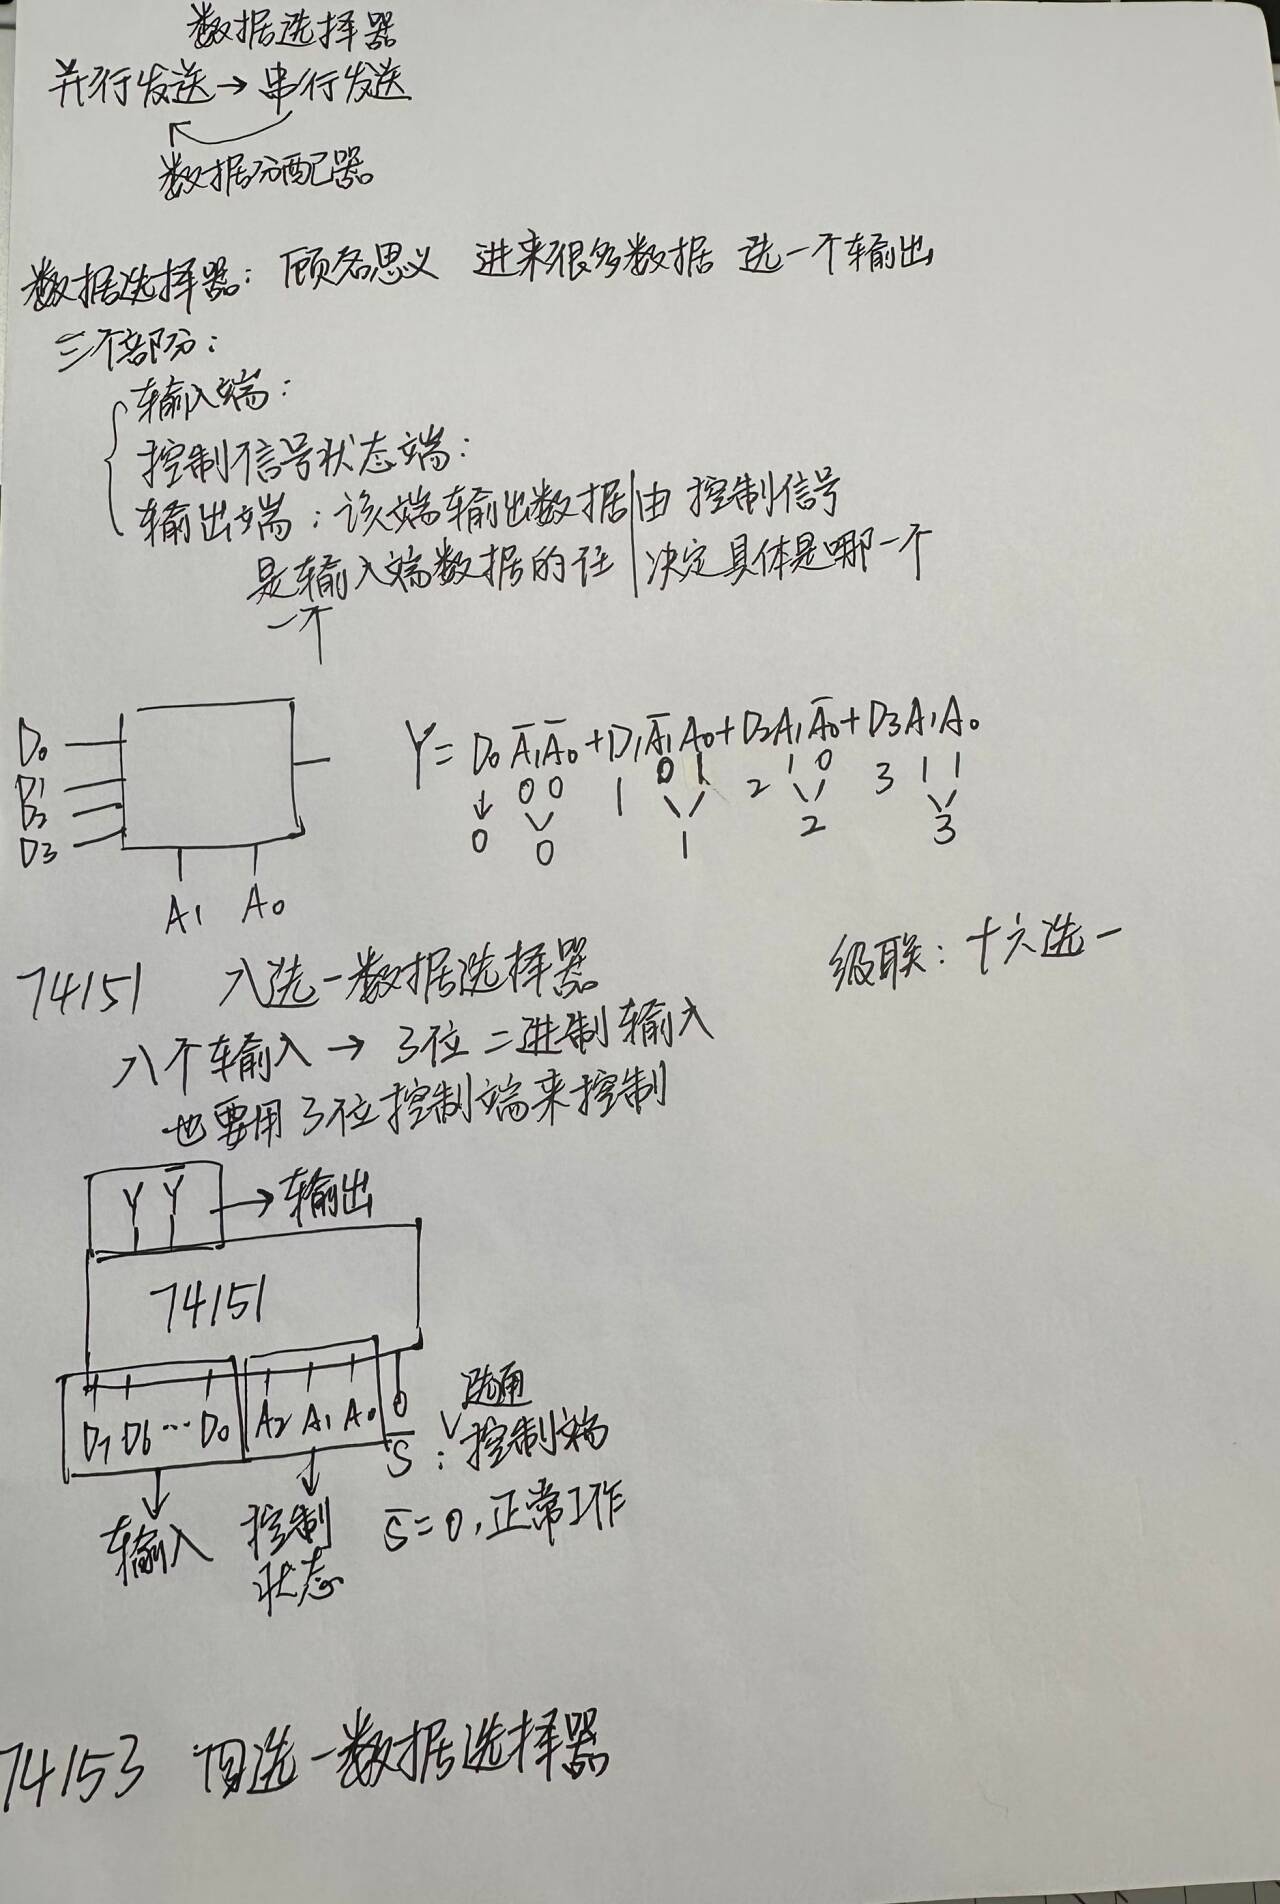 数据选择器
并行发送→串行发送
数据分配器
数据选择器：顾名思义 进来很多数据 选一个输出
三个部分：
输入端：
控制信号状态端：
输出端：该端输出数据|由控制信号
是输入端数据的任|决定具体是哪一个
一个
D₀
D1
D₂
D3
A1 A₀
Y= D₀A̅₁A̅₀+D₁A̅₁A₀+D₂A₁A̅₀+D3A₁A₀
↓ 0 0 1 0 1 2 1 0 3 1 1
0 0 1 2 3
级联：十六选一
74151 八选一数据选择器
八个输入→3位二进制输入
也要用3位控制端来控制
Y Y̅ →输出
74151
D₇ D₆ … D₀ A₂ A₁ A₀
选通
S̅：控制端
输入 控制状态
S̅=0，正常工作
74153 四选一数据选择器